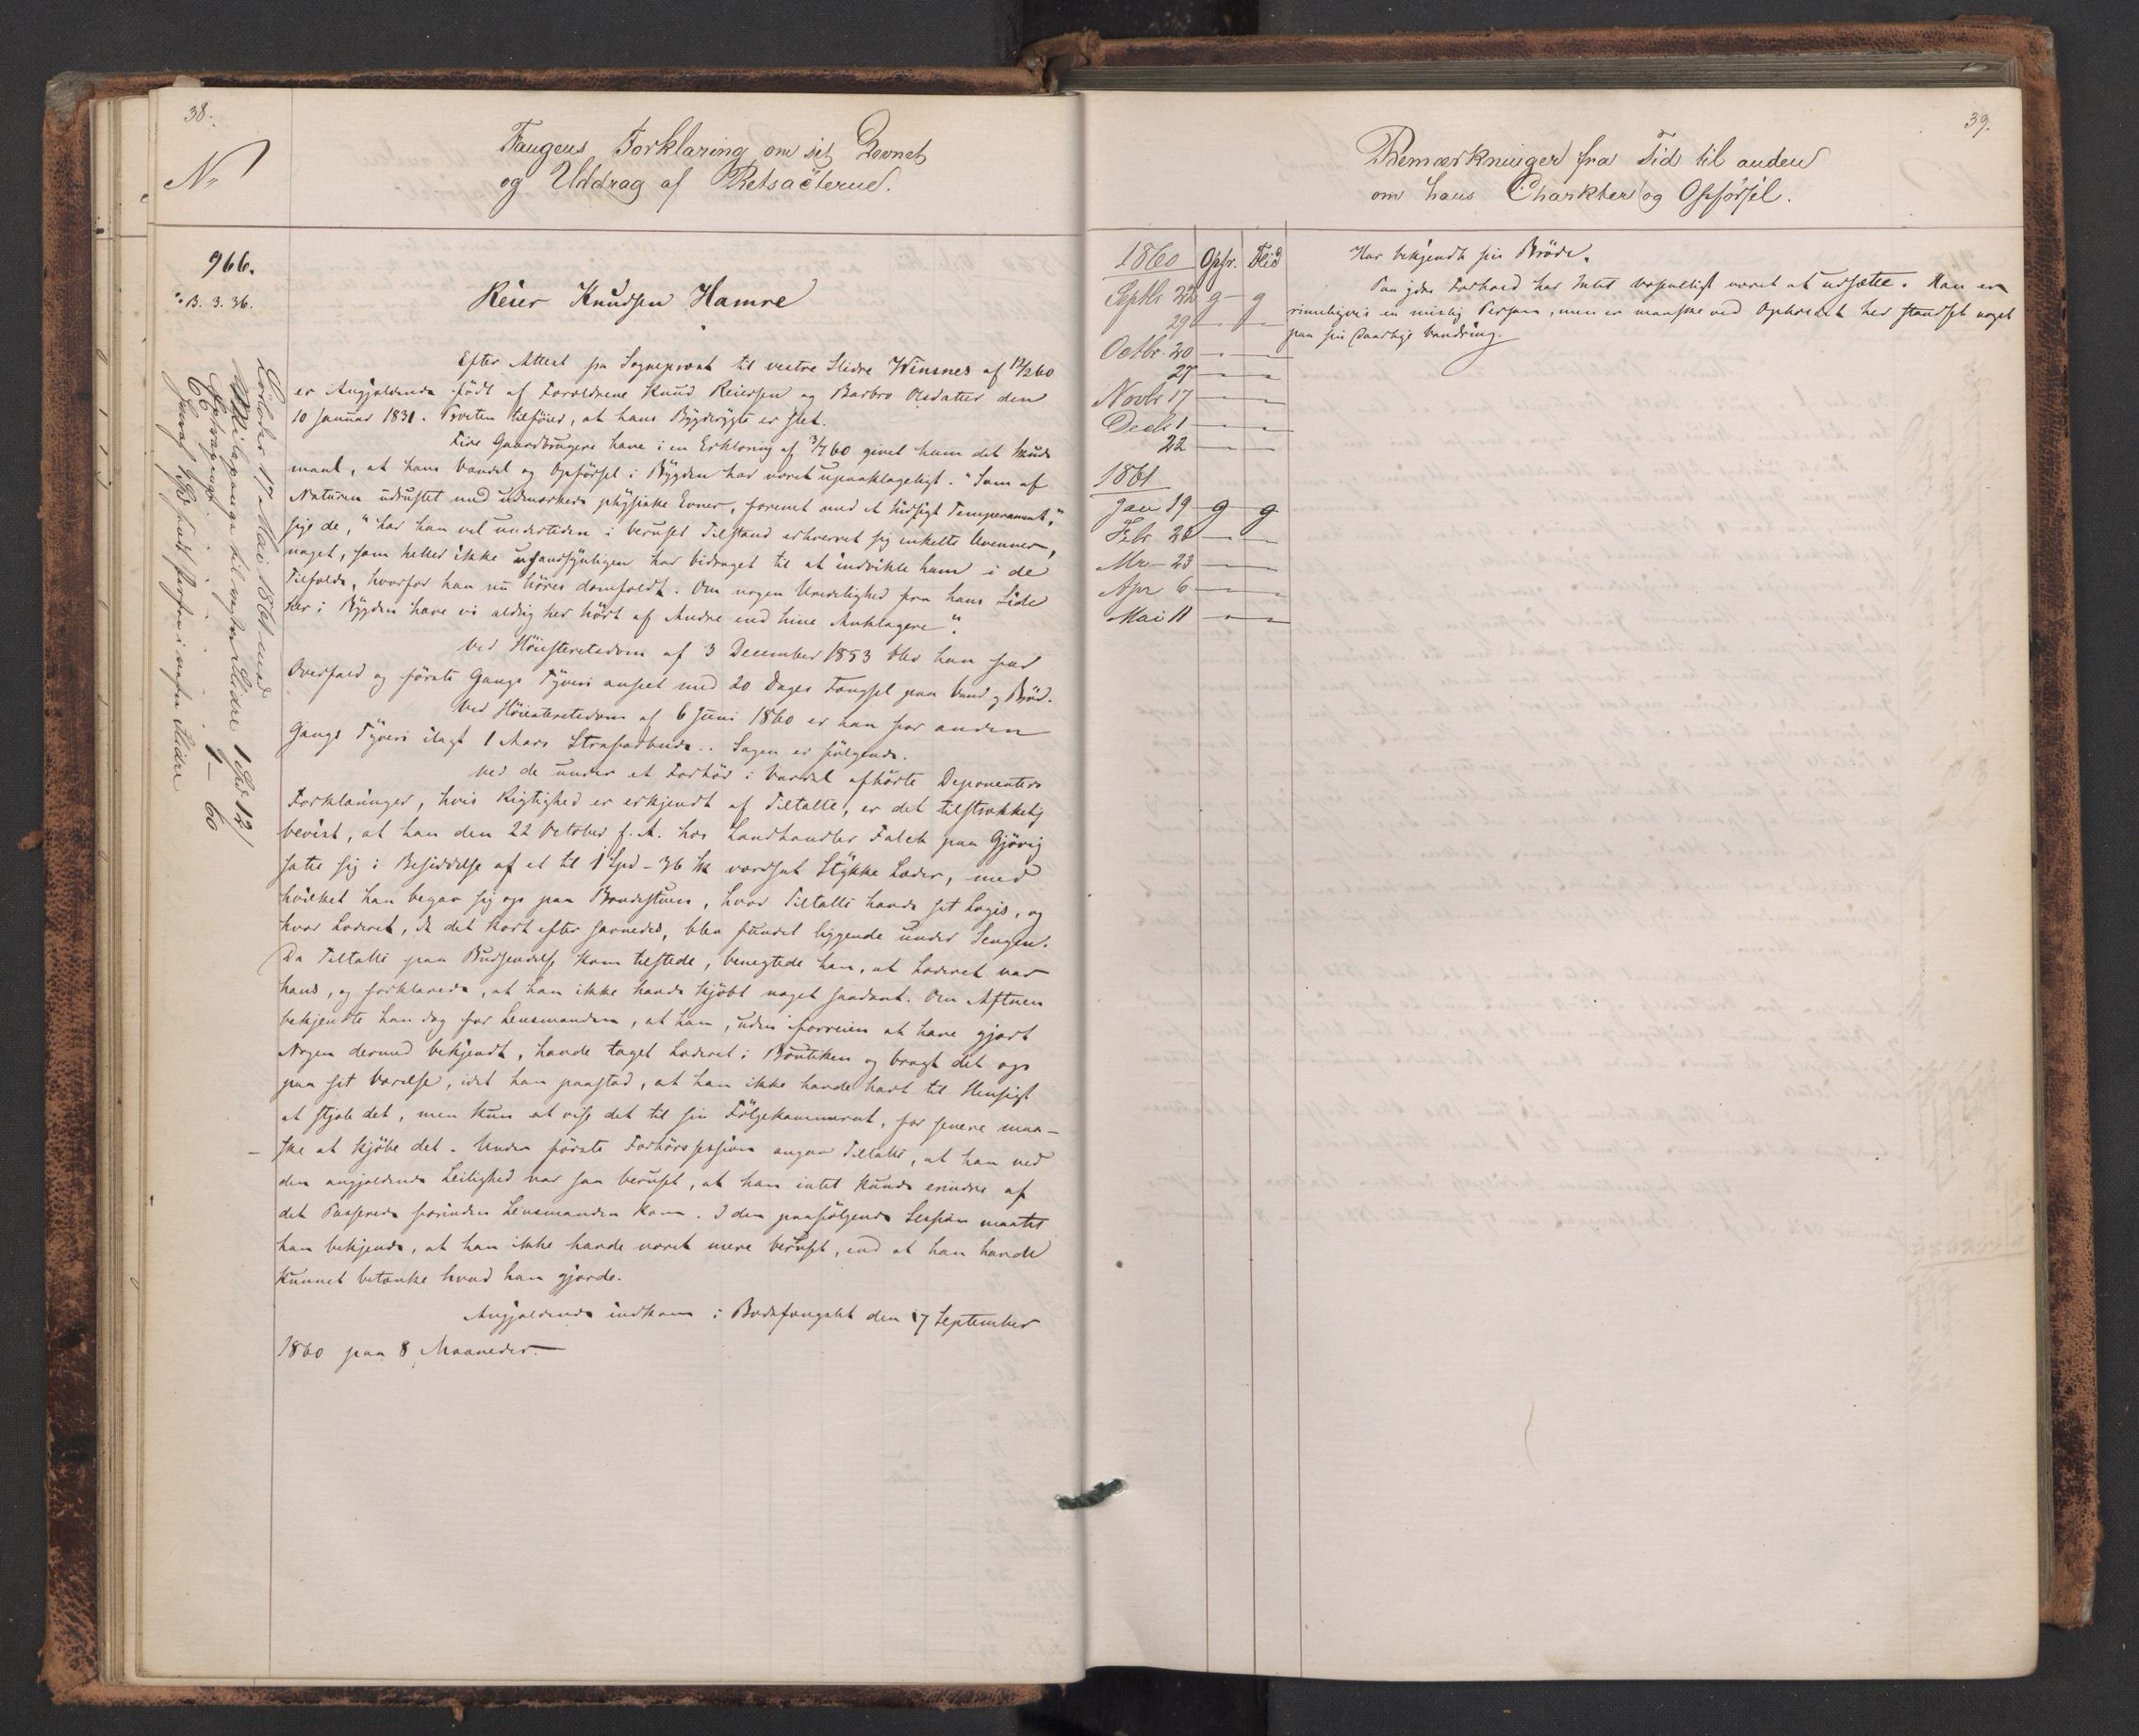 38.
Fangens Forklaring om sit Levnet
og Uddrag af Retsacterne.
No
966.
B. 3. 36.
Reier Knudsen Hamre
Efter Attest fra Sogneprest til vestre Slidre Winsnes af 12/2 60
er Angjældende født af Forældrene Knud Reiersen og Barbro Olsdatter den
10 Januar 1831. Presten tilføier, at hans Bygderygte er slet.
Fire Gaardbrugere have i en Erklæring af 3/7 60 givet ham det Skuds
maal, at hans Vandel og Opførsel i Bygden har været upaaklageligt. "Som af
Naturen udrustet med udmærkede physiske Evner, forenet med et hidsigt Temperament,"
sige de, "har han vel undertiden i beruset Tilstand erhvervet sig enkelte Uvenner,
noget, som heller ikke usandsynligen har bidraget til at indvikle ham i de
Tilfælde, hvorfor han nu høres domfældt. Om nogen Uredelighed fra hans Side
her i Bygden have vi aldrig her hørt af Andre end hine Anklagere".
Ved Høiesteretsdom af 3 December 1853 blev han for
Overfald og første Gangs Tyveri anseet med 20 Dages Fængsel paa Vand og Brød.
Ved Høiesteretsdom af 6 Juni 1860 er han for anden
Gangs Tyveri ilagt 1 Aars Strafarbeide. Sagen er følgende.
Ved de under et Forhør i Vardal afhørte Deponenters
Forklaringer, hvis Rigtighed er erkjendt af Tiltalte, er det tilstrækkelig
bevist, at han den 22 October f. A. hos Landhandler Falck paa Gjøvig
satte sig i Besiddelse af et til 1 Spd - 36 Sk værdsat Stykke Læder, med
hvilket han begav sig op paa Borgestuen, hvor Tiltalte havde sit Logis, og
hvor Læderet, da det kort efter savnedes, blev fundet liggende under Sengen.
Da Tiltalte paa Budsendelse kom tilstede, benegtede han, at Læderet var
hans, og forklarede, at han ikke havde kjøbt noget saadant. Om Aftenen
bekjendte han dog for Lensmanden, at han, uden forveien at have gjort
Nogen dermed bekjendt, havde taget Læderet i Boutiken og bragt det op
paa sit Værelse, idet han paastod, at han ikke havde havt til Hensigt
at stjæle det, men kun at vise det til sin Følgekammerat, for senere maa-
ske at kjøbe det. Under første Forhørssession angav Tiltalte, at han ved
den angjældende Leilighed var saa beruset, at han intet kunde erindre af
det Passerede førinden Lensmanden kom. I den paafølgende Session maatte
han bekjende, at han ikke havde været mere beruset, end at han havde
kunnet betænke hvad han gjorde.
Angjældende indkom i Bodsfængslet den 17 September
1860 paa 8 Maaneder.
Løslades 17 Mai 1861 med
Skilspenge til vestre Slidre 1 Spd 12
Extrapenge 1 - 60
39.
Bemærkninger fra Tid til anden
om hans Charkter og Opførsel.
1860 Opfr. Flid
Septbr 22 g g
29 - -
Octbr. 20 - -
27 - -
Novbr 17 - -
Decbr 1 - -
22 - -
1861
Jan 19 g g
Febr 20 - -
Mr 23 - -
Apr 6 - -
Mai 11 - -
Har bekjendt sin Brøde.
Paa ydre Forhold har Intet væsentligt været at udsætte. Han er
rimeligvis en mislig Person, men er maaske ved Opholdet her standset noget
paa sin daarlige Vandring.